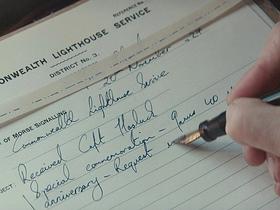 REFERENCE No.
ONWEALTH LIGHTHOUSE SERVICE
DISTRICT No. 3.
20 November
OF MORSE SIGNALLING
Commonwealth Lighthouse Service
Received Capt
Special commemoration - 40
anniversary - Request